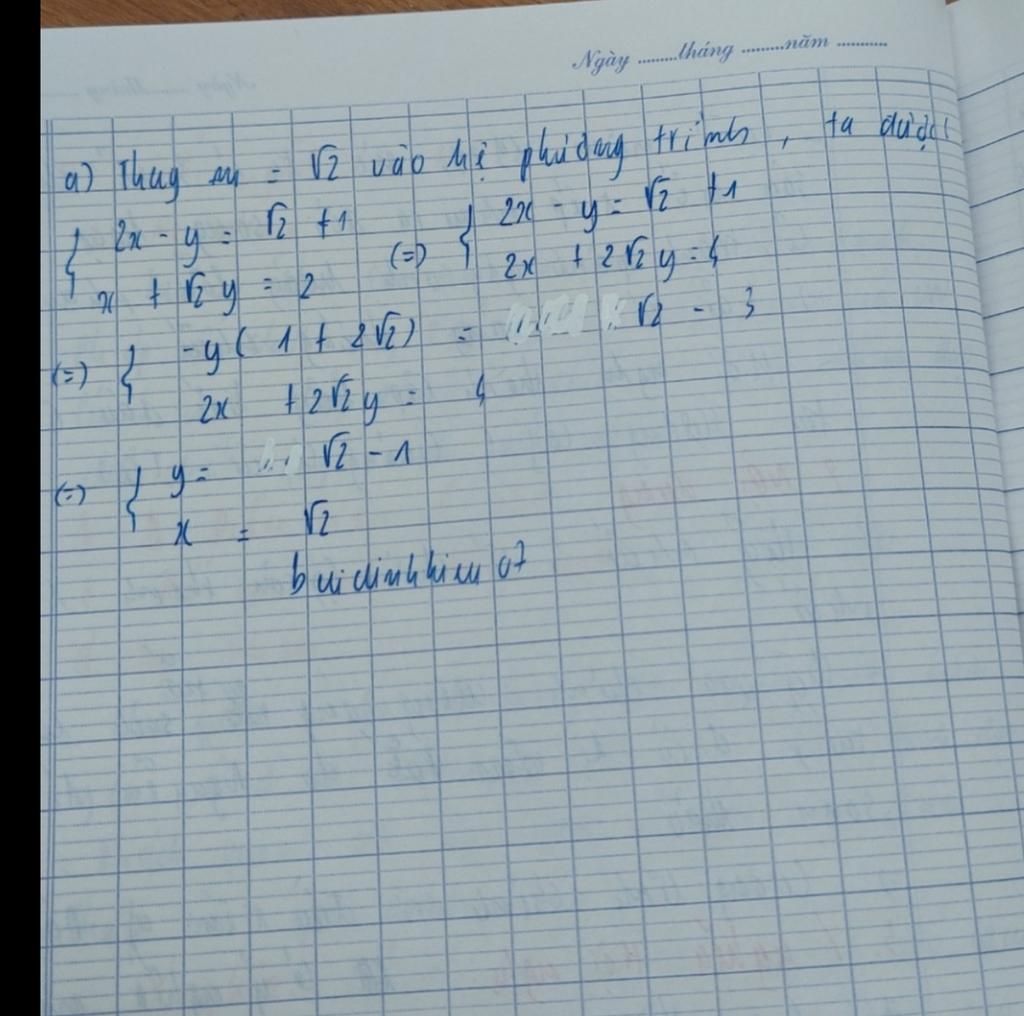 Ngày .........tháng .........năm ..........
a) Thay m = √2 vào hệ phương trình, ta được:
{ 2x - y = √2 + 1 (=) { 2x - y = √2 + 1
x + √2 y = 2 2x + 2√2 y = 4
(=) { -y ( 1 + 2√2 ) = √2 - 3
2x + 2√2 y = 4
(=) { y = √2 - 1
x = √2
buidinhhieu 07